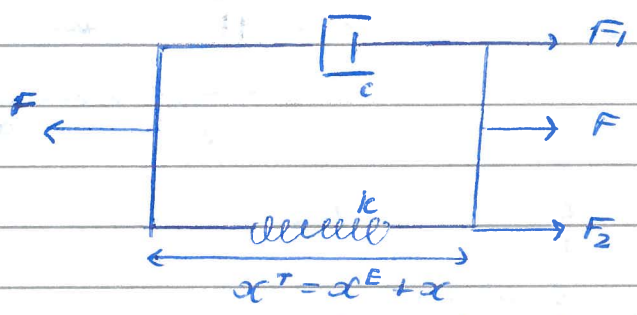 F₁
c
F
F
k
F₂
xᵀ = xᴱ + x